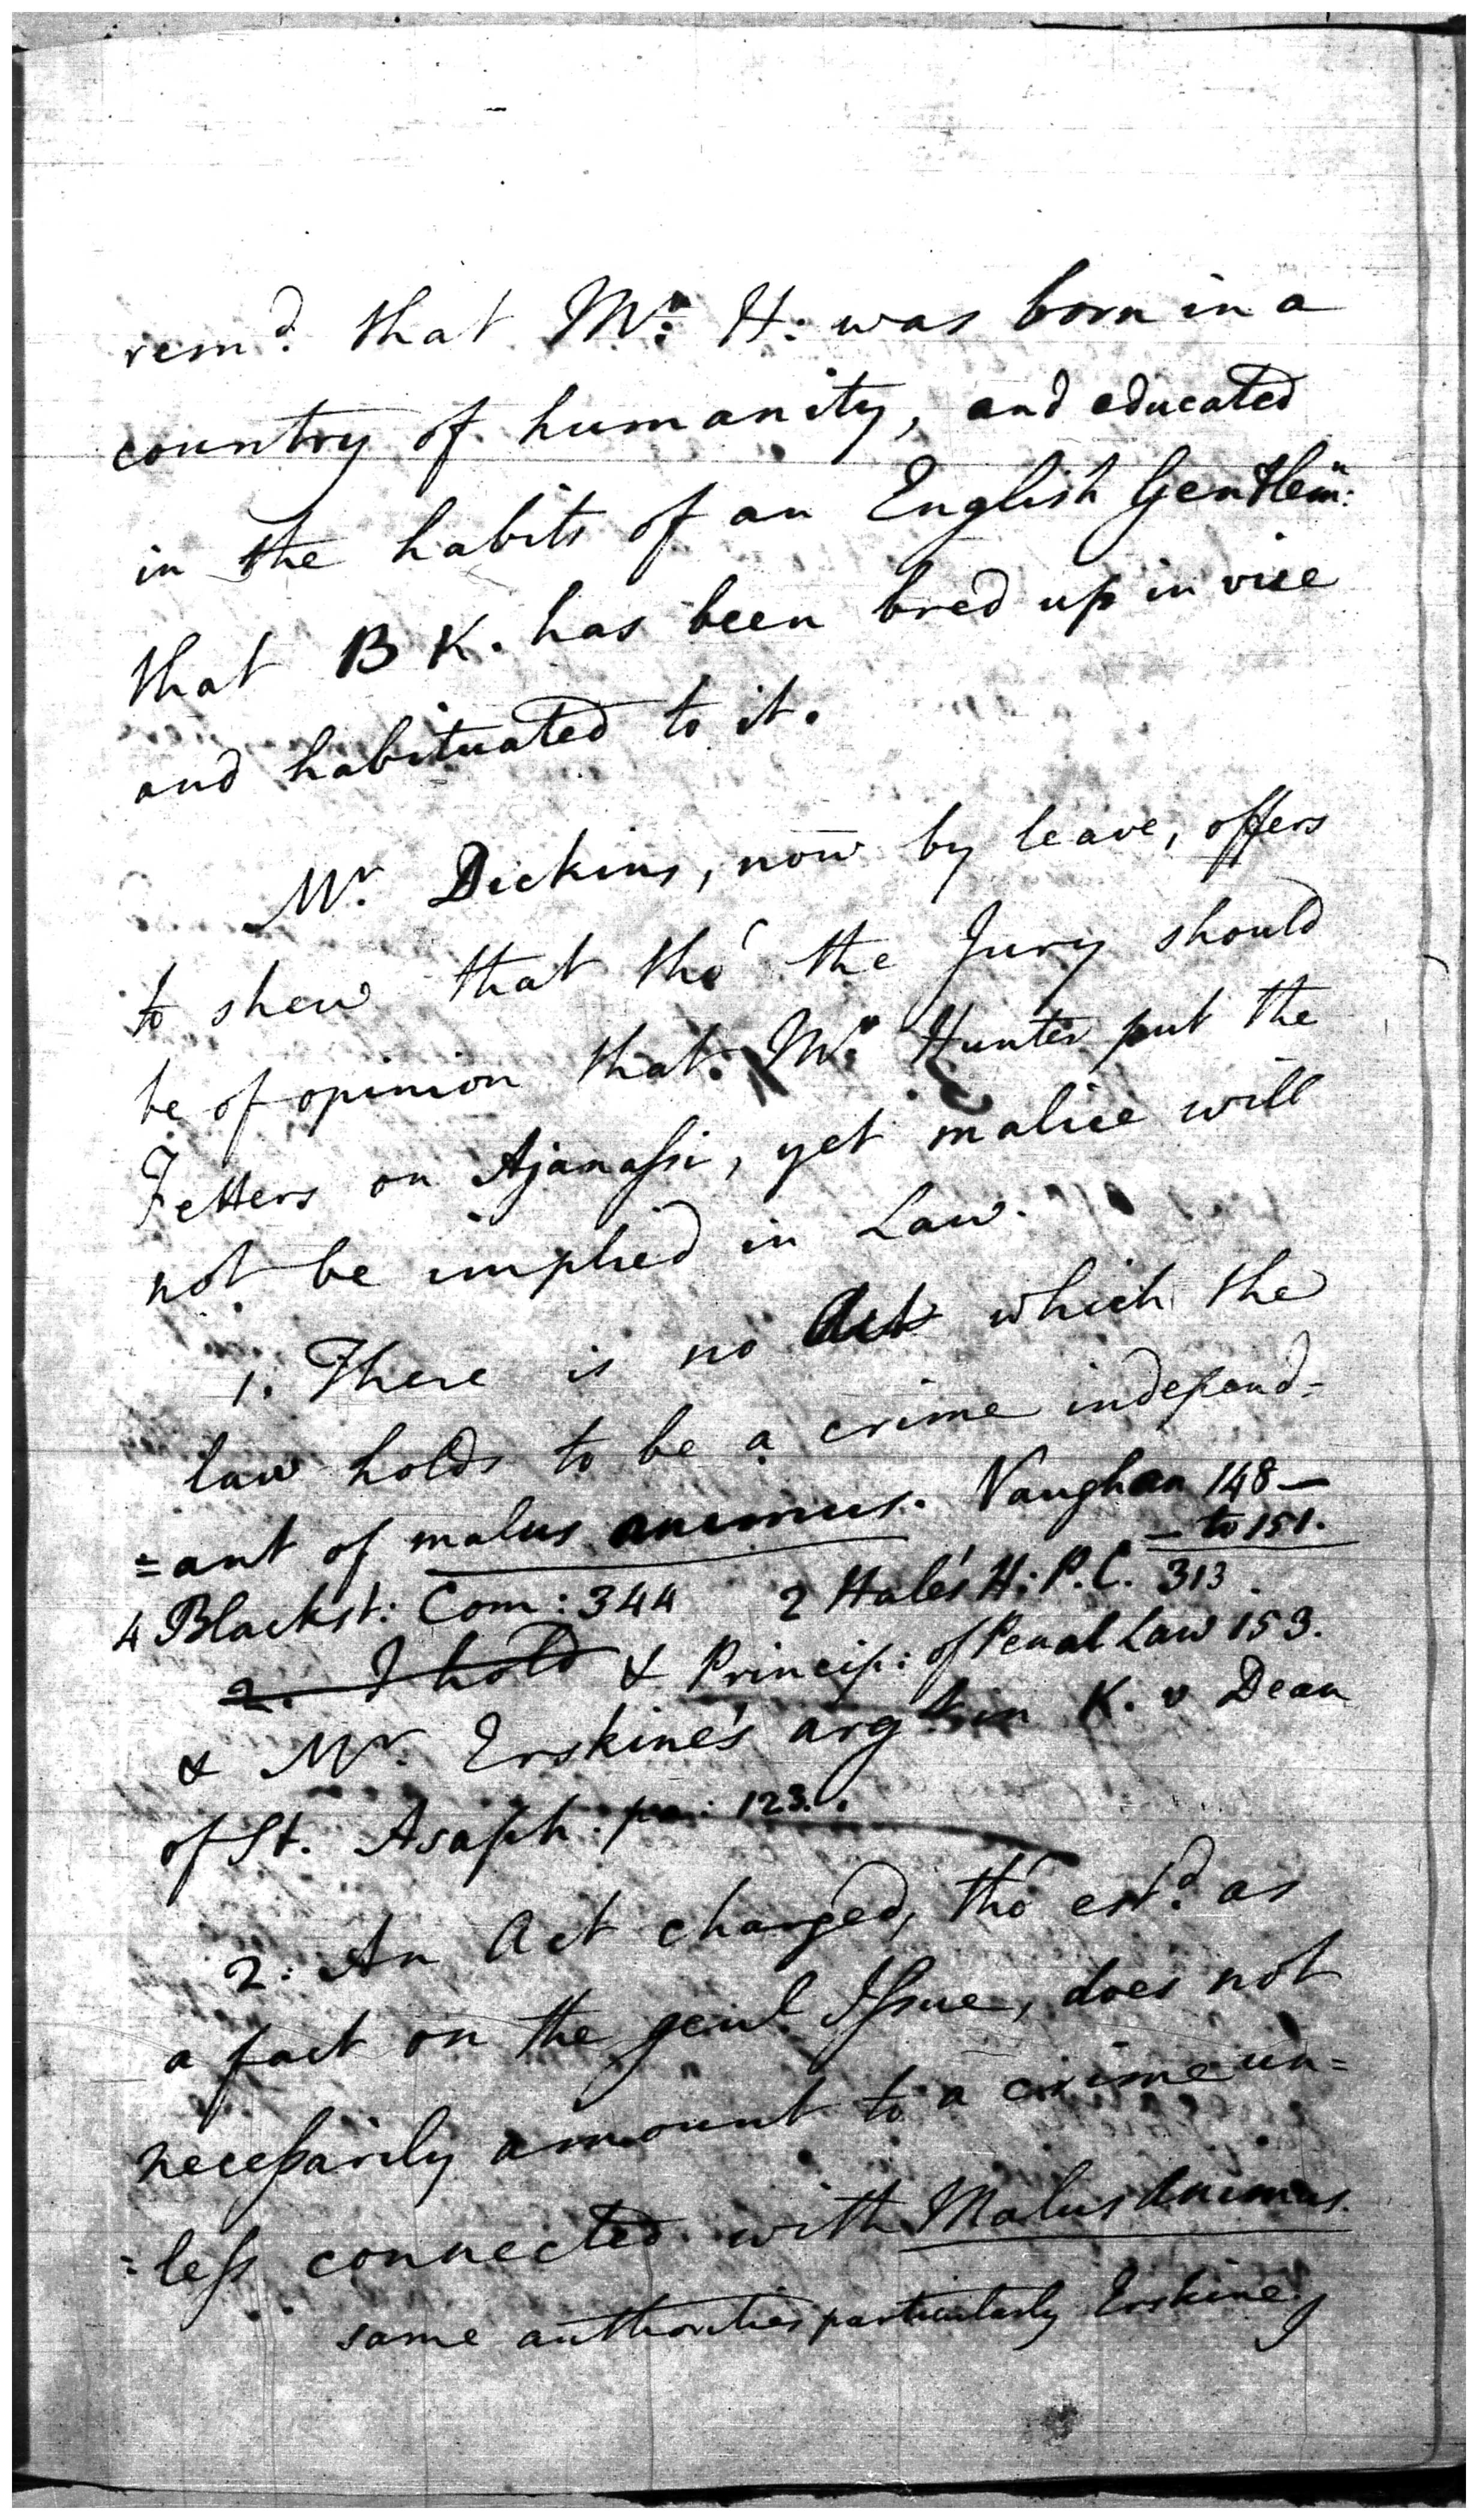 rem.d that Mr. H: was born in a
country of humanity, and educated
in the habits of an English Gentlem:
that B K. has been bred up in vice
and habituated to it.
Mr. Dickins, now by leave, offers
to shew that tho' the Jury should
be of opinion that Mr. Hunter put the
Fetters on Ajanaſsi, yet malice will
not be implied in Law.
1. There is no Act which the
law holds to be a crime independ-
=ant of malus animus. Vaughan 148 —
— to 151.
4 Blackst: Com: 344 2 Hale's H: P. C. 313.
2. I hold & Princip: of Penal Law 153.
& Mr. Erskine's arg.t in K. v Dean
of St. Asaph. pa: 123.
2. An Act charged, tho' est.d as
a fact on the genl Iſsue, does not
neceſsarily amount to a crime un=
=leſs connected with Malus Animus.
same authorities particularly Erskine